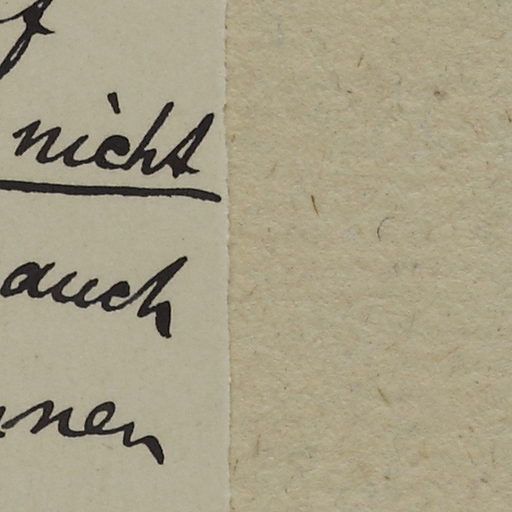 nicht
auch
nen